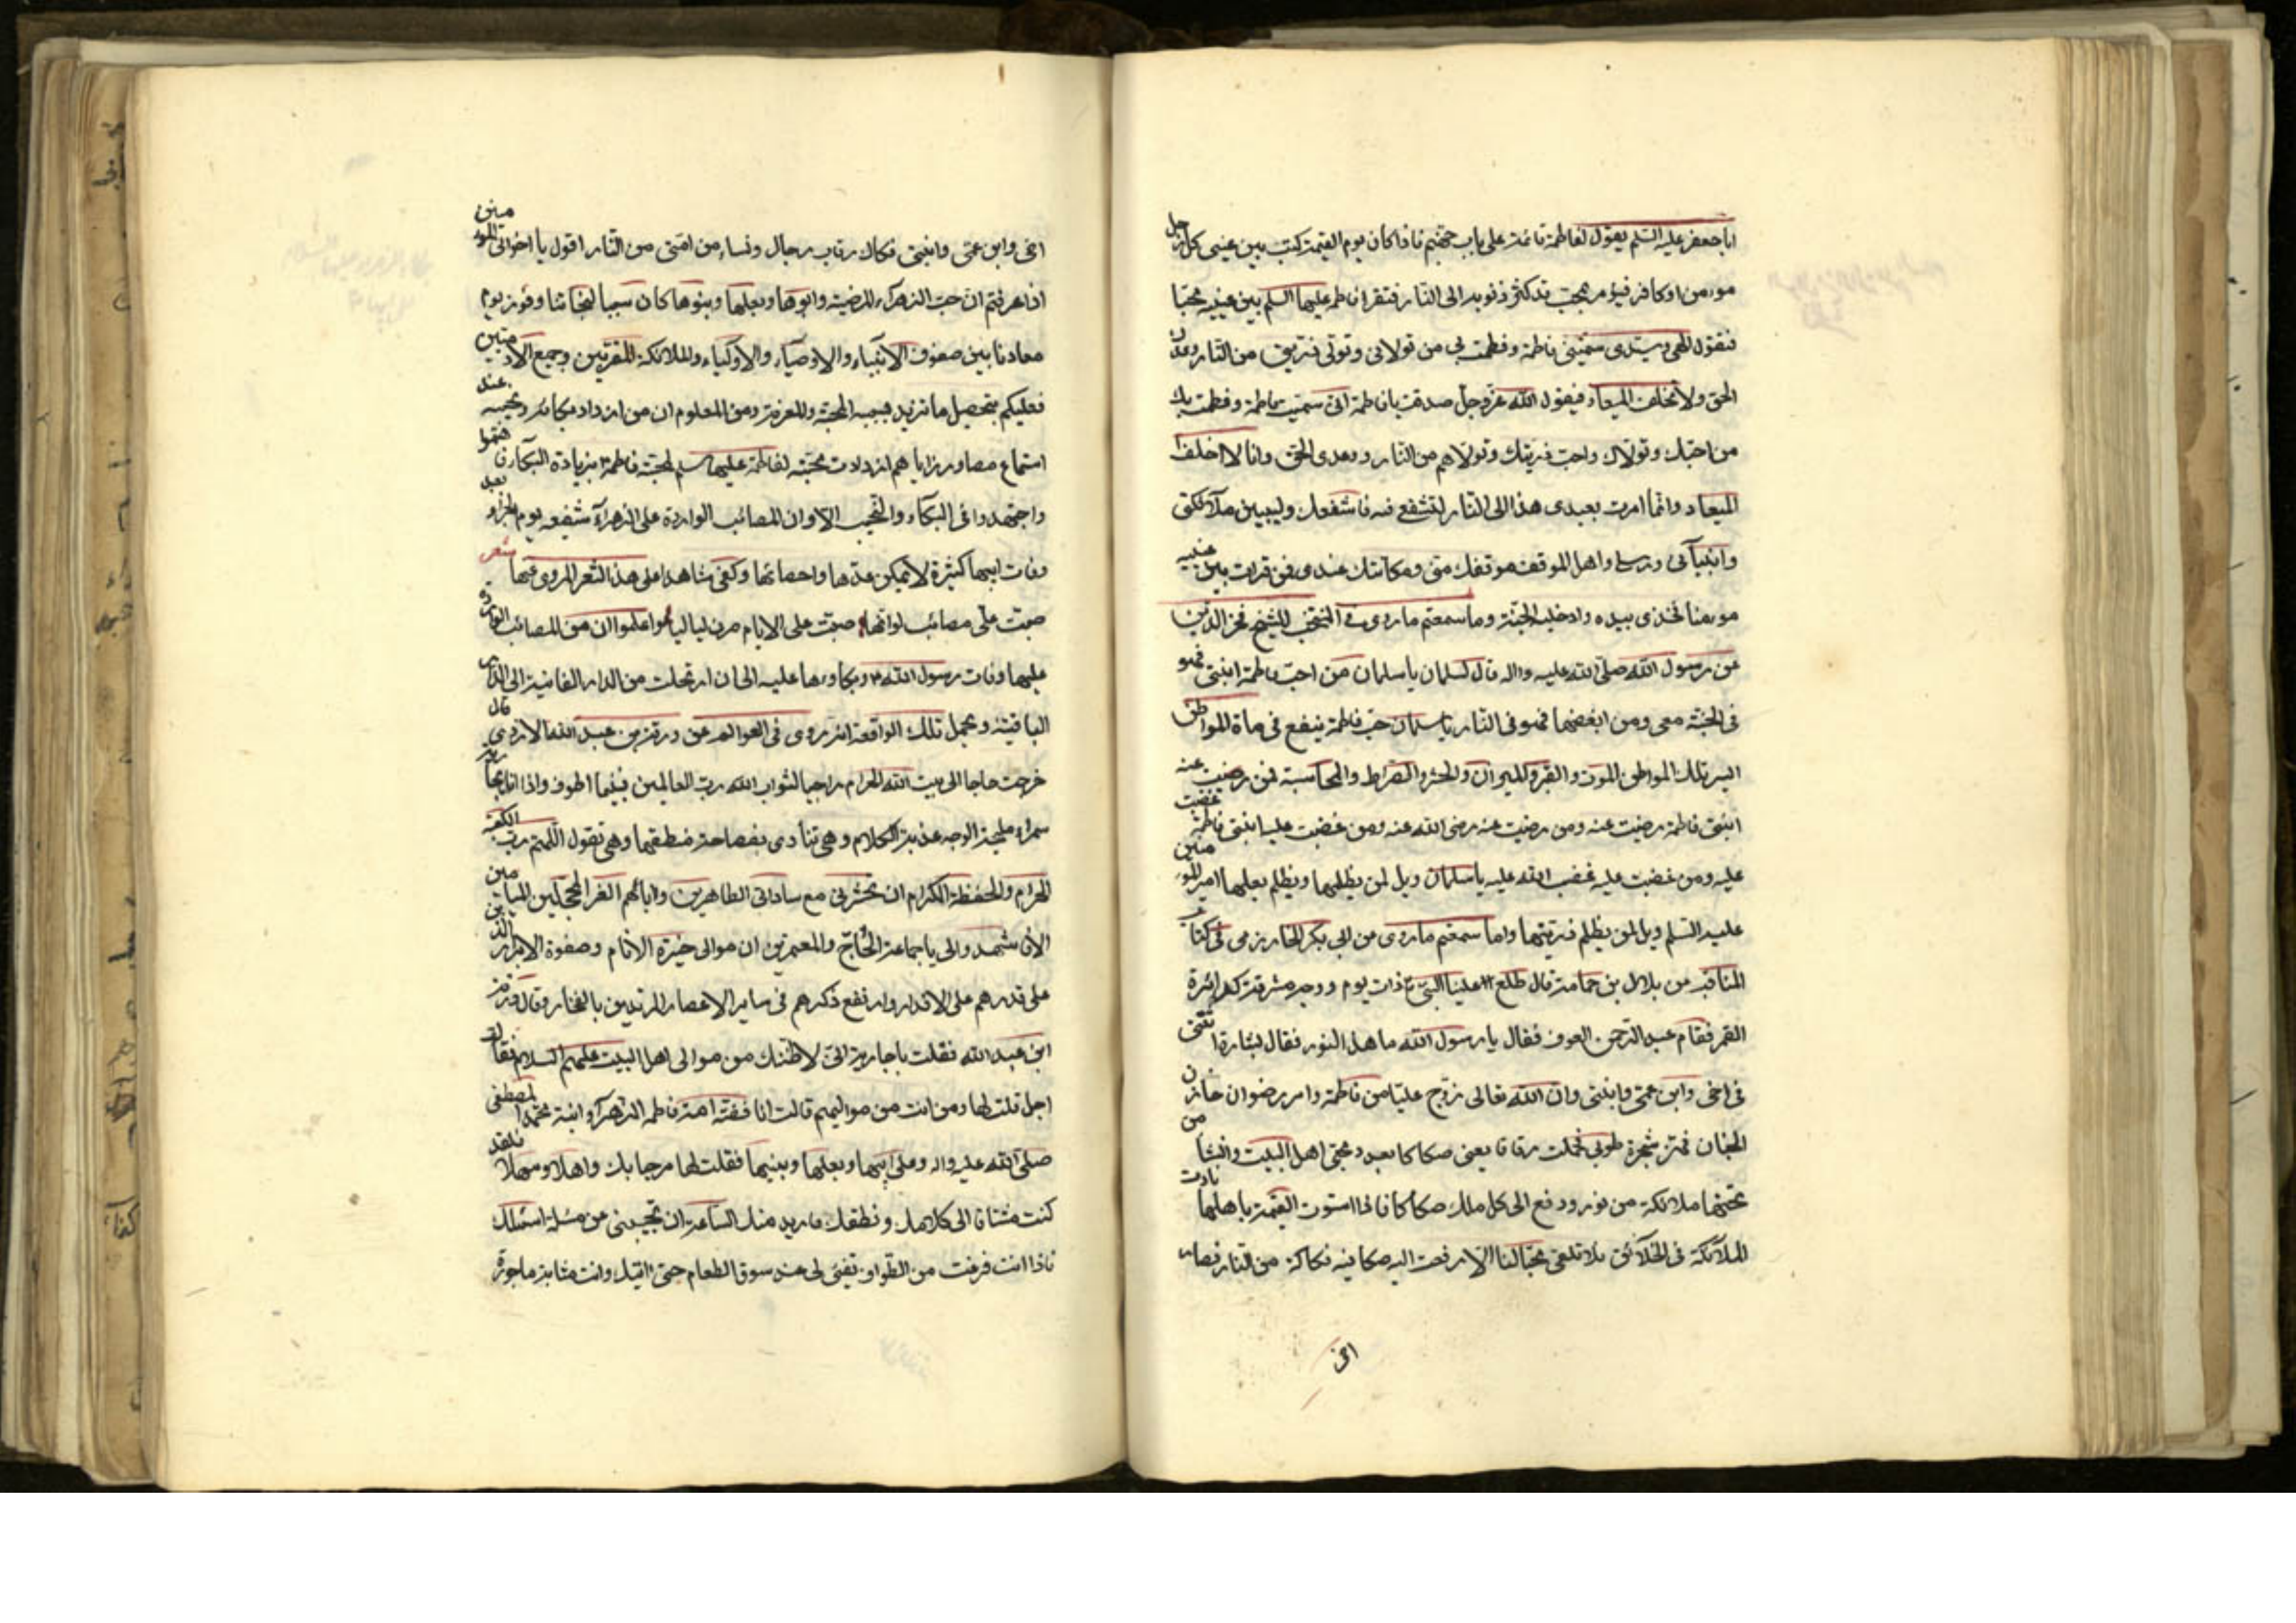 اباجعفر عليه السّلم يقول لفاطمة قائمة على باب جهنم فاذا كان يوم القيمة كتب بين عينى كل رجل
مومن او كافر فيؤمر بمحب قد كثر ذنوبه الى النّار فتقرا فاطمه عليها السلم بين عينيه محبا
فتقول الهى وسيّدى سمّيتنى فاطمة وفطمت بى من تولانى وتولى ذريتى من النّار ووعدك
الحق ولا تخلف الميعاد فيقول الله عزّ وجل صدقت يا فاطمة انى سميتك فاطمة وفطمت بك
من احبّك وتولاك واحب ذريتك وتولاهم من النّار ووعدى الحق وانا لا اخلف
الميعاد وانّما امرت بعبدى هذا الى النّار لتشفع فيه فاشفعك وليبين ملآئكتى
وانبيآئى ورسلى واهل الموقف موقفك منى ومكانتك عندى فمن قرات بين عينيه
مومنا فخذى بيده وادخليه الجنّة وما سمعتم ما روى فى المنتخب للشيخ فخر الدّين
عن رسول الله صلّى الله عليه واله قال لسلمان يا سلمان من احبّ فاطمة ابنتى فهو
فى الجنّة معى ومن ابغضها فهو فى النّار يا سلمان حبّ فاطمة ينفع فى مأة المواطن
ايسر تلك المواطن الموت والقبر والميزان والحشر والصّراط والمحاسبة فمن رضيت عنه
ابنتى فاطمة رضيت عنه ومن رضيت عنه رضى الله عنه ومن غضبت عليه ابنتى فاطمة غضبت
عليه ومن غضبت عليه غضب الله عليه يا سلمان ويل لمن يظلمها ويظلم بعلها امير المؤمنين
عليه السّلم ويل لمن يظلم ذريّتها واما سمعتم ما روى عن ابى بكر الخوارزمى فى كتاب
المناقب عن بلال بن حمامة قال طلع علينا النّبى ذات يوم ووجهه مشرق كدائرة
القمر فقام عبد الرّحمن العوف فقال يا رسول الله ما هذا النور فقال بشارة اتتنى
فى اخى وابن عمّى وابنتى وانّ الله تعالى زوّج عليّا من فاطمة وامر رضوان خازن
الجنان فهزّ شجرة طوبى فحملت رقاقا يعنى صكاكا بعدد محبّى اهل البيت وانشا من
تحتها ملائكة من نور ودفع الى كل ملك صكاكا فاذا استوت القيمة باهلها نادت
الملآئكة فى الخلآئق فلا تلقى محبّا لنا الّا دفعت اليه صكا فيه فكاكه من النّار فصار
اخى
اخى وابن عمّى وابنتى فكاك رقاب رجال ونساء من امّتى من النّار اقول يا اخوانى المومنين
اذا عرفتم انّ حبّ الزهرآء المرضية وابوها وبعلها وبنوها كان سببا لنجاتنا وفوز يوم
معادنا بين صفوف الانبياء والاوصيآء والاولياء والملائكة المقرّبين وجميع الآدميين
فعليكم بتحصيل ما تزيد به المحبّة والمعرفة ومن المعلوم ان من ازداد بكائه ونحيبه عند
استماع مصاب رزاياهم ازدادت محبّته لفاطمة عليها سلم بزيادة البكآء
واجتهدوا فى البكآء والنحيب الا وان المصائب الواردة على الزهرآء شفيعه يوم الجزاء بعد
وفات ابيها كثيرة لا يمكن عدّها واحصائها وكفى شاهدا على هذا الشعر المروى عنها شعر
صبّت علّى مصائب لو انّها صبّت على الايام صرن لياليا واعلموا ان من المصائب الواردة
عليها وفات رسول الله وبكاوءها عليه الى ان ارتحلت من الدار الفانية الى الدّار
الباقية ومجمل تلك الواقعة انه روى فى العوالم عن ورقة بن عبد الله الازدى قال
خرجت حاجا الى بيت الله الحرام راجيا لثواب الله ربّ العالمين فبينما اطوف واذا انا بجارية
سمرآء مليحة الوجه عذبة الكلام وهى تنادى بفصاحة منطقها وهى تقول اللّهم ربّ الكعبة
الحرام والحفظة الكرام ان تحشرنى مع ساداتى الطاهرين وابائهم الغر المحجّلين الميامين
الا فاشهدوا لى يا جماعة الحُجّاج والمعتمرين ان موالى خيرة الانام وصفوة الابرار الذين
على قدرهم على الاقدار وارتفع ذكرهم فى ساير الاعصار المرتدين بالفخار وقال ورقة
ابن عبد الله فقلت يا جارية انّى لاظنّك من موالى اهل البيت عليهم السلام فقالت
اجل قلت لها ومن انت من مواليهم قالت انا فضّة امة فاطمة الزهرآء ابنة محمّد المصطفى
صلّى الله عليه واله وعلى ابيها وبعلها وبنيها فقلت لها مرحبا بك واهلا وسهلا فلقد
كنت مشتاقا الى كلامك ونطقك فاريد منك السّاعة ان تجيبنى من مسئلة اسئلك
فاذا انت فرغت من الطّواف قفى لى عند سوق الطعام حتى اتيك وانت مثابة ماجورة